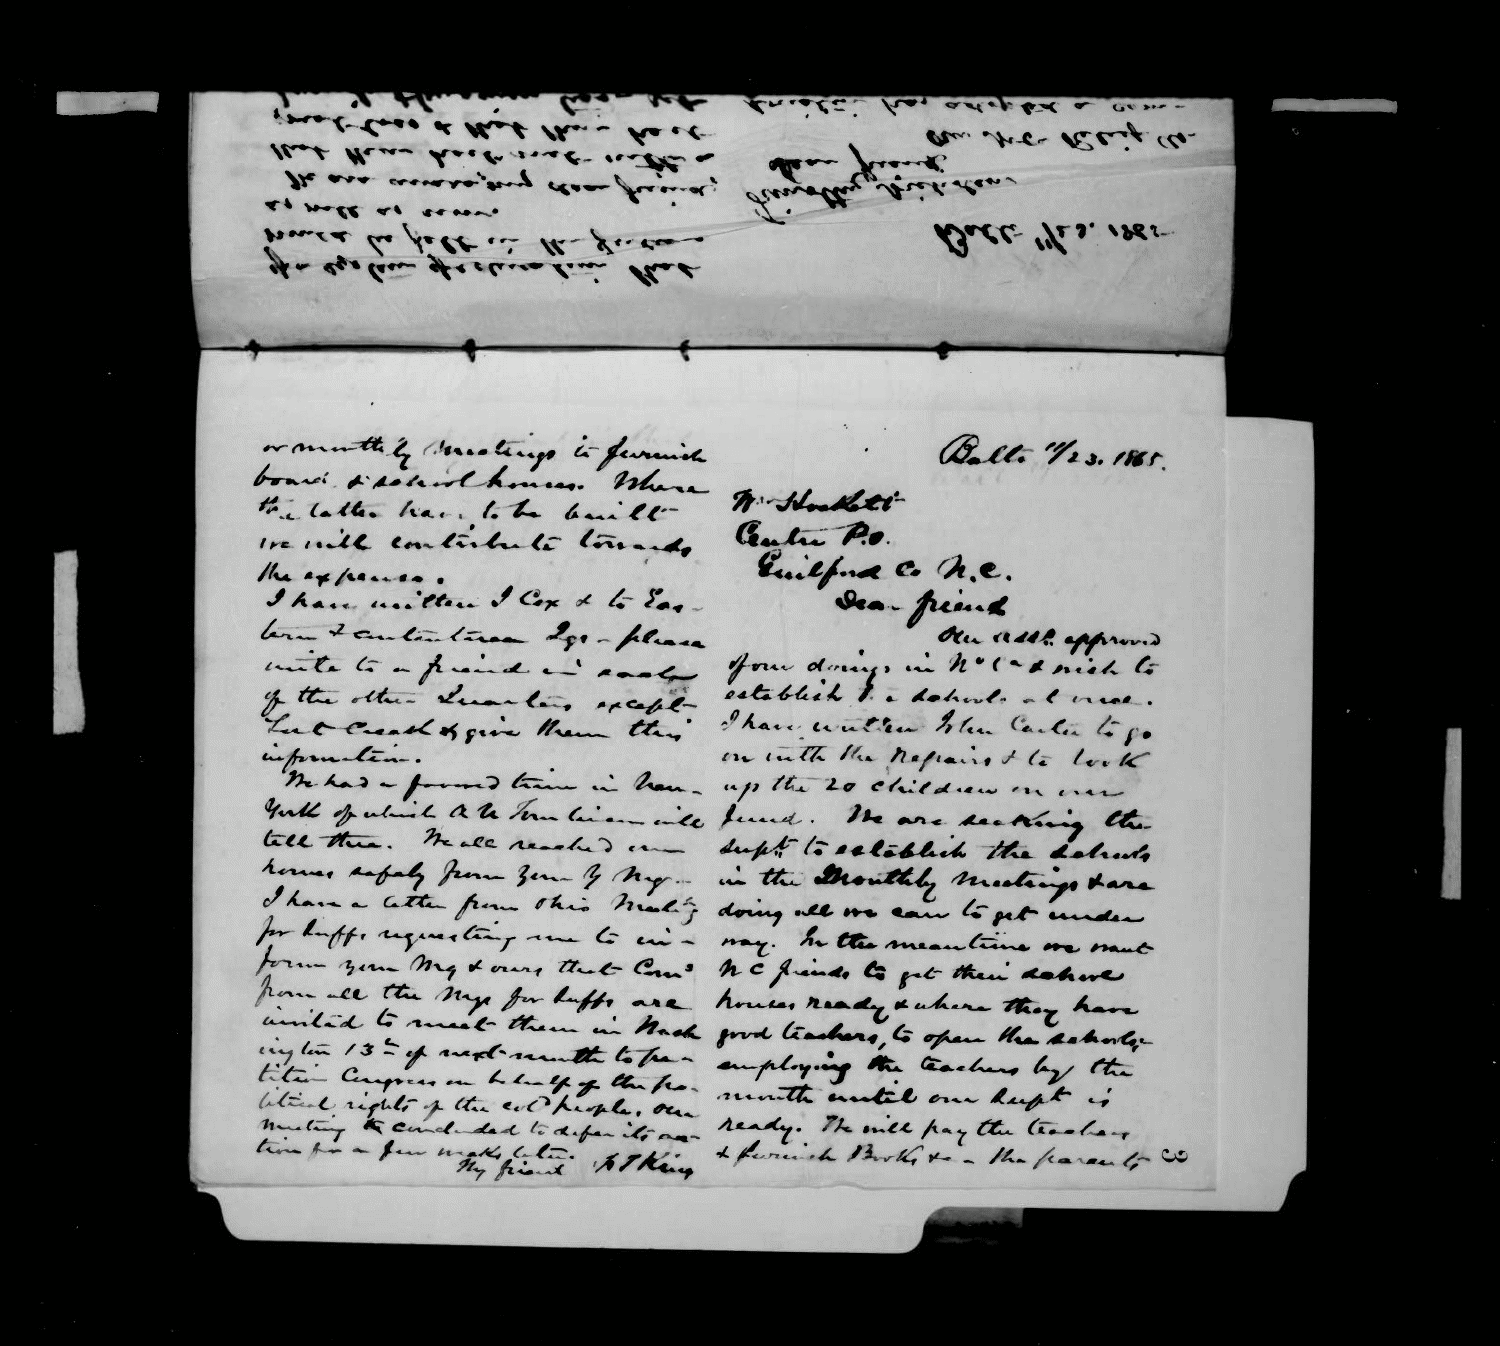 Balto 11/23. 1865.
Wm Hockett
Centre P.O.
Guilford Co N.C.
Dear friend
Our assn. approved
of our doings in No Ca & wish to
establish the schools at once.
I have written John Carter to go
on with the repairs & to look
up the 20 children on our
fund. We are seeking the
supt. to establish the schools
in the Monthly Meetings & are
doing all we can to get under
way. In the meantime we want
N C friends to get their school
houses ready & where they have
good teachers, to open the schools,
employing the teachers by the
month until our supt is
ready. We will pay the teachers
& furnish Books &c - the parents
3
or monthly meetings to furnish
board & school houses. Where
the latter have to be built
we will contribute towards
the expense.
I have written I Cox & to Eas-
tern & Contentnea Qrs - please
write to a friend in each
of the other Quarters except
Lost Creek & give them this
information.
We had a favored time in New
York of which A U Tomlinson will
tell thee. We all reached our
homes safely from your Y Mg.
I have a letter from Ohio Meeting
for suffs requesting me to in-
form your Mg & ours that Coms
from all the Mgs for suffs are
invited to meet them in Wash
ington 13th of next month to pe-
tition Congress on behalf of the po-
litical rights of the cold people. Our
meeting concluded to defer its ac-
tion for a few weeks later.
Thy friend F T King
Balto 11/23. 1865
Timothy Nicholson
Dear friend
Our Balt Relig
of a system of education that
would be felt in the future
as well as now.
We are aware, my dear friend,
that thou hast met with a
great loss & that thou hast